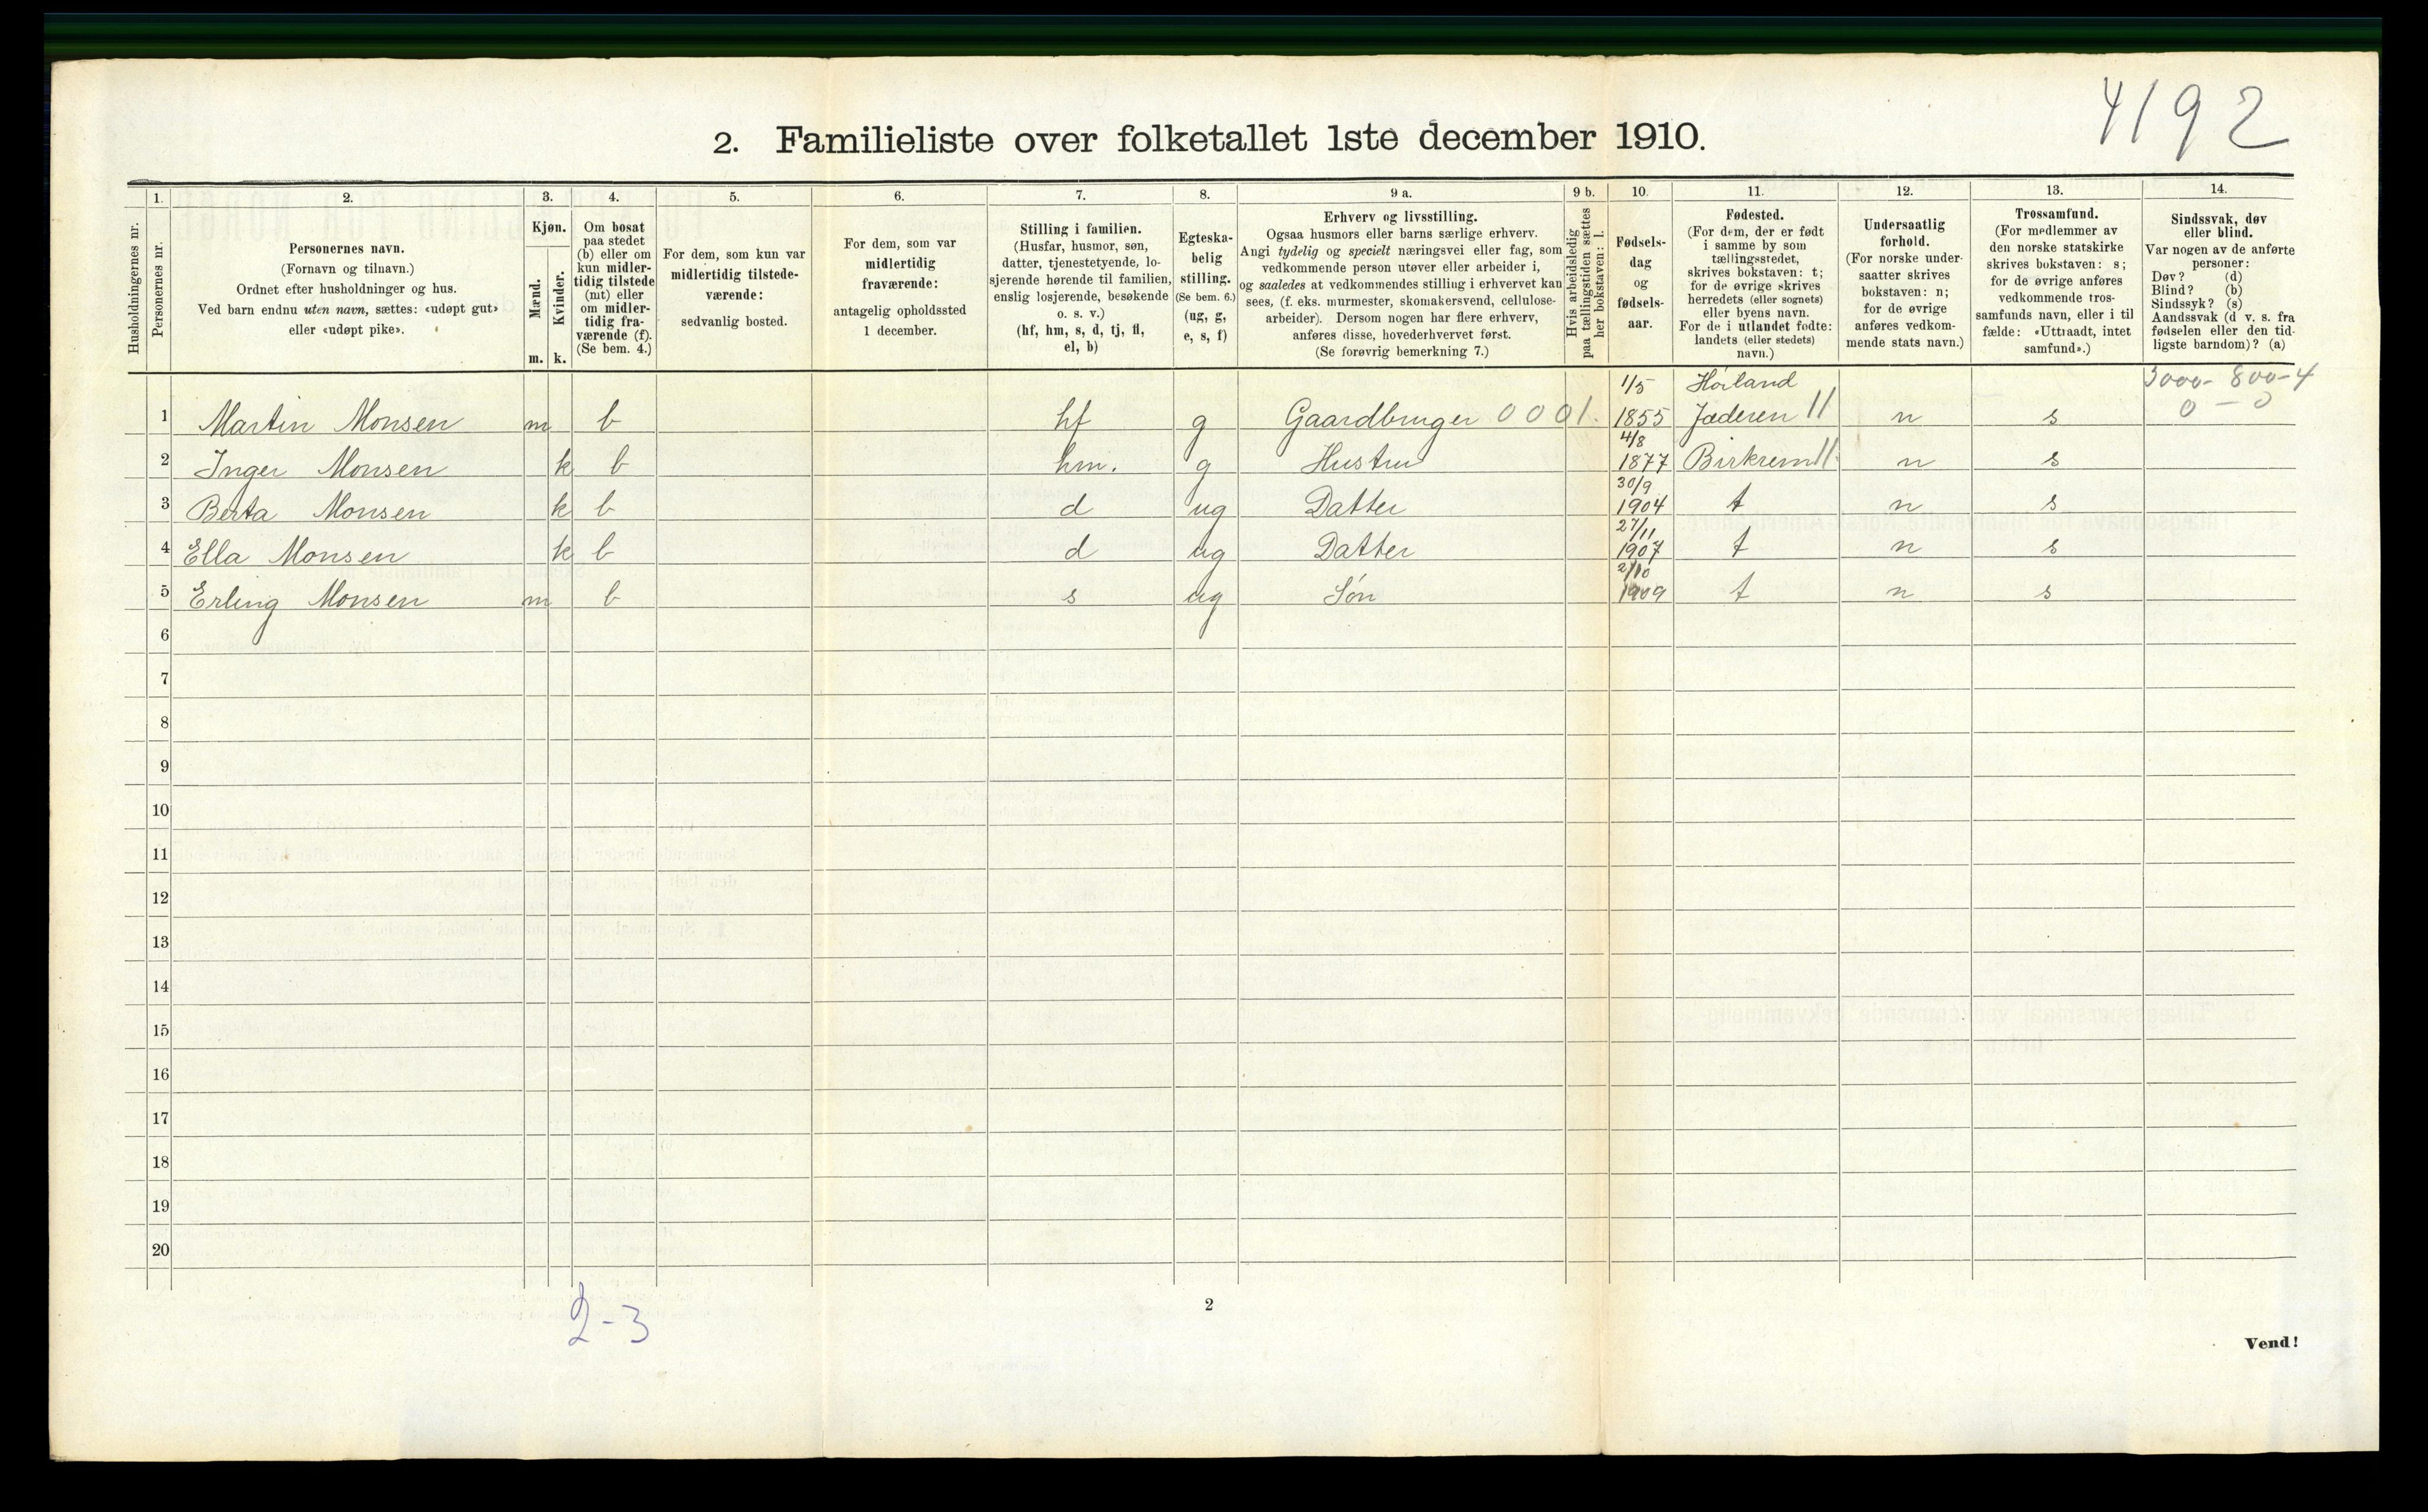 4192
2. Familieliste over folketallet 1ste december 1910.
Husholdningernes nr.
1.
Personernes nr.
2.
Personernes navn.
(Fornavn og tilnavn.)
Ordnet efter husholdninger og hus.
Ved barn endnu uten navn, sættes: «udøpt gut»
eller «udøpt pike».
3.
Kjøn.
Mænd.
Kvinder.
m. k.
4.
Om bosat
paa stedet
(b) eller om
kun midler-
tidig tilstede
(mt) eller
om midler-
tidig fra-
værende (f).
(Se bem. 4.)
5.
For dem, som kun var
midlertidig tilstede-
værende:
sedvanlig bosted.
6.
For dem, som var
midlertidig
fraværende:
antagelig opholdssted
1 december.
7.
Stilling i familien.
(Husfar, husmor, søn,
datter, tjenestetyende, lo-
sjerende hørende til familien,
enslig losjerende, besøkende
o. s. v.)
(hf, hm, s, d, tj, fl,
el, b)
8.
Egteska-
belig
stilling.
(Se bem. 6.)
(ug, g,
e, s, f)
9 a.
Erhverv og livsstilling.
Ogsaa husmors eller barns særlige erhverv.
Angi tydelig og specielt næringsvei eller fag, som
vedkommende person utøver eller arbeider i,
og saaledes at vedkommendes stilling i erhvervet kan
sees, (f. eks. murmester, skomakersvend, cellulose-
arbeider). Dersom nogen har flere erhverv,
anføres disse, hovederhvervet først.
(Se forøvrig bemerkning 7.)
9 b.
Hvis arbeidsledig
paa tællingstiden sættes
her bokstaven: l.
10.
Fødsels-
dag
og
fødsels-
aar.
11.
Fødested.
(For dem, der er født
i samme by som
tællingsstedet,
skrives bokstaven: t;
for de øvrige skrives
herredets (eller sognets)
eller byens navn.
For de i utlandet fødte:
landets (eller stedets)
navn.)
12.
Undersaatlig
forhold.
(For norske under-
saatter skrives
bokstaven: n;
for de øvrige
anføres vedkom-
mende stats navn.)
13.
Trossamfund.
(For medlemmer av
den norske statskirke
skrives bokstaven: s;
for de øvrige anføres
vedkommende tros-
samfunds navn, eller i til
fælde: «Uttraadt, intet
samfund».)
14.
Sindssvak, døv
eller blind.
Var nogen av de anførte
personer:
Døv? (d)
Blind? (b)
Sindssyk? (s)
Aandssvak (d v. s. fra
fødselen eller den tid-
ligste barndom)? (a)
1/5 Høiland 3000- 800-4
1 Martin Monsen m b hf g Gaardbruger 0001. 1855 Jæderen 11 n s 0-0
4/8
2 Inger Monsen k b hm. g Hustru 1877 Birkrem 11 n s
30/9
3 Berta Monsen k b d ug Datter 1904 t n s
27/11
4 Ella Monsen k b d ug Datter 1907 t n s
2/10
5 Erling Monsen m b s ug Søn 1909 t n s
6
7
8
9
10
11
12
13
14
15
16
17
18
19
20
2-3
2
Vend!